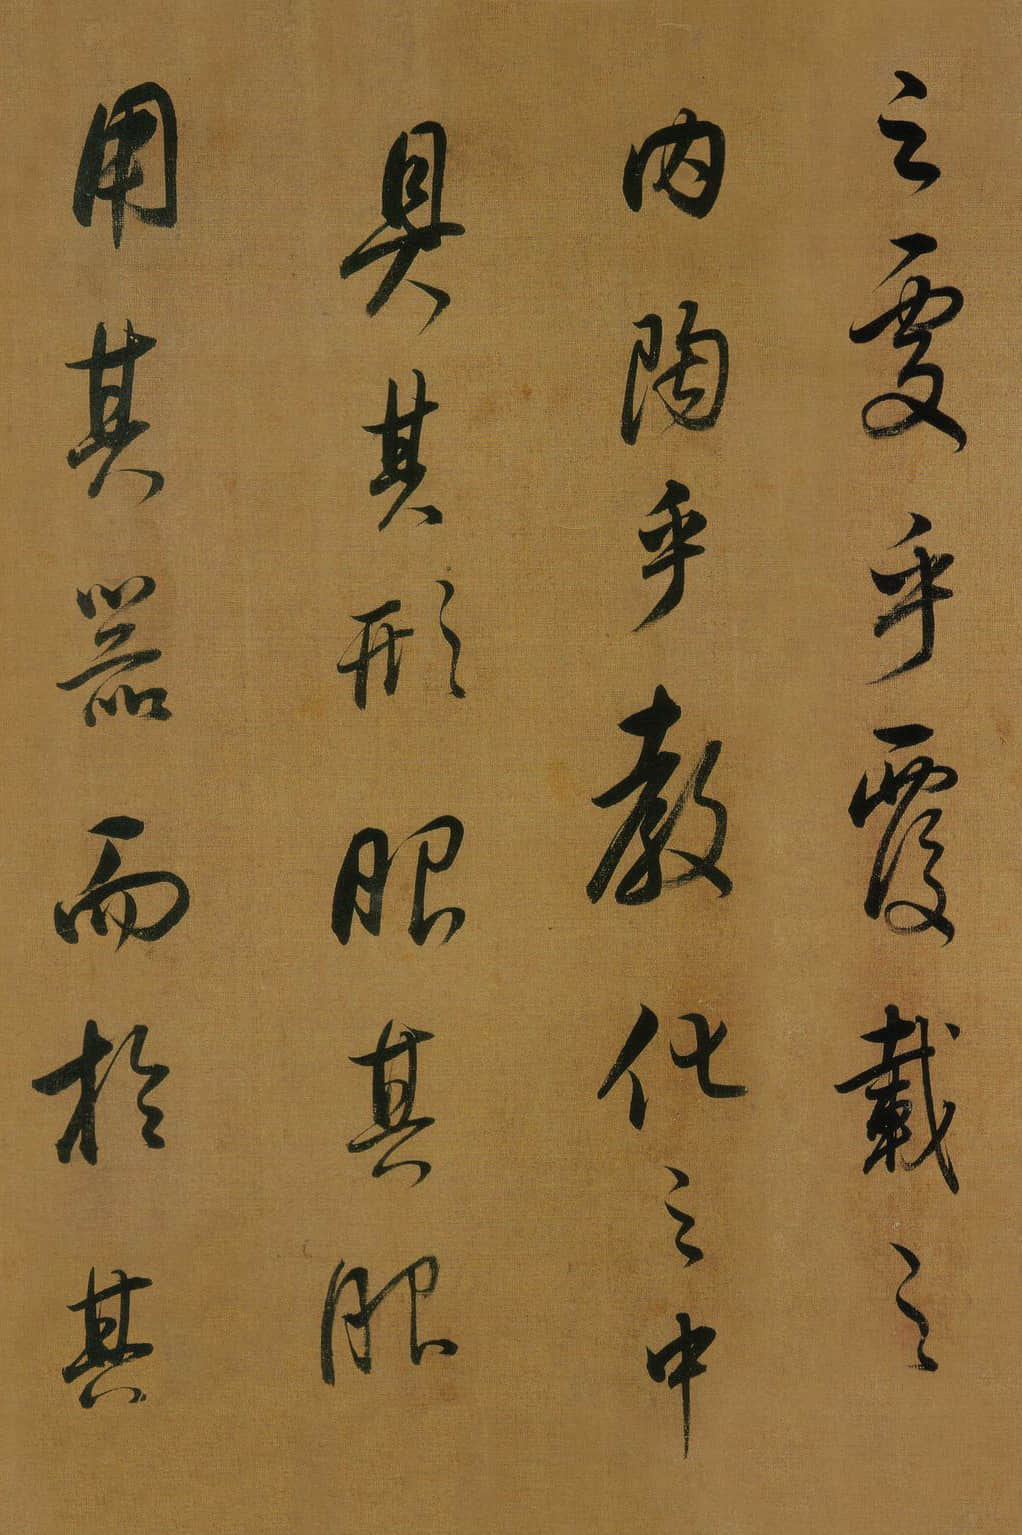 之處乎覆載之
内陶乎教化之中
具其形服其服
用其器而於其